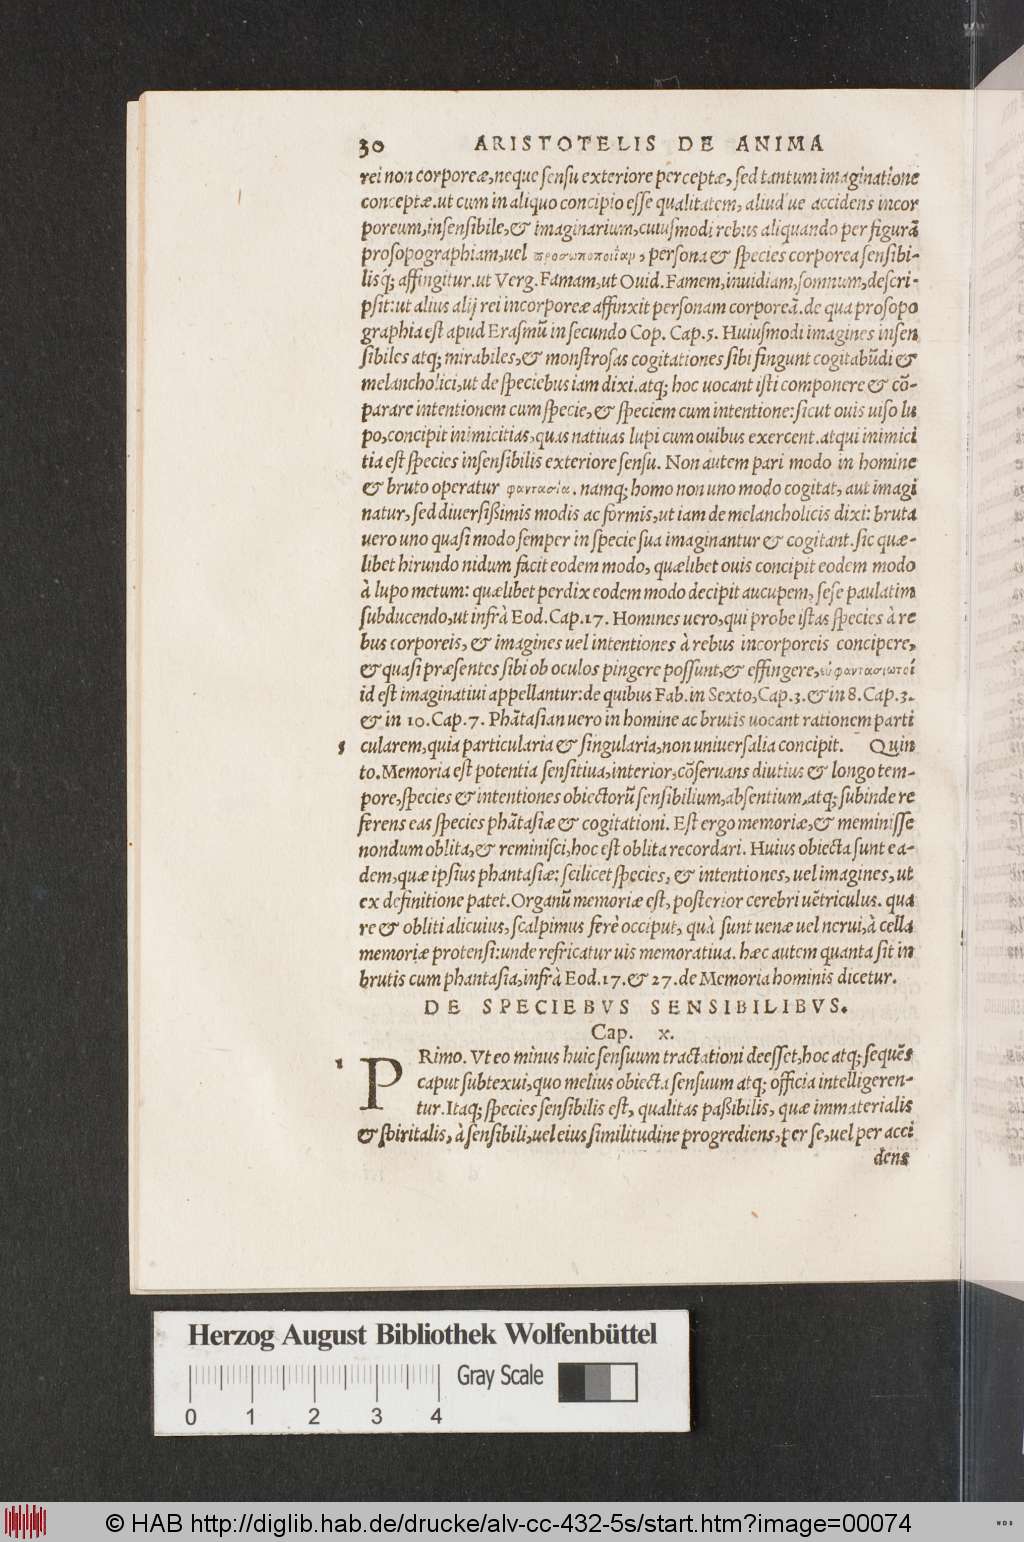 30 ARISTOTELIS DE ANIMA
rei non corporeæ, neque sensu exteriore perceptæ, sed tantum imaginatione
conceptæ. ut cum in aliquo concipio esse qualitatem, aliud ue accidens incor
poreum, insensibile, & imaginarium, cuiusmodi rebus aliquando per figurā
prosopographiam, uel προσωποποιΐαν, persona & species corporea sensibi-
lisq́; affingitur. ut Verg. Famam, ut Ouid. Famem, inuidiam, somnum, descri-
psit: ut alius alij rei incorporeæ affinxit personam corporeā. de qua prosopo
graphia est apud Erasmū in secundo Cop. Cap. 5. Huiusmodi imagines insen
sibiles atq; mirabiles, & monstrosas cogitationes sibi fingunt cogitabūdi &
melancholici, ut de speciebus iam dixi. atq; hoc uocant isti componere & cō-
parare intentionem cum specie, & speciem cum intentione: sicut ouis uiso lu
po, concipit inimicitias, quas natiuas lupi cum ouibus exercent. atqui inimici
tia est species insensibilis exteriore sensu. Non autem pari modo in homine
& bruto operatur φαντασία. namq; homo non uno modo cogitat, aut imagi
natur, sed diuersißimis modis ac formis, ut iam de melancholicis dixi: bruta
uero uno quasi modo semper in specie sua imaginantur & cogitant. sic quæ-
libet hirundo nidum facit eodem modo, quælibet ouis concipit eodem modo
à lupo metum: quælibet perdix eodem modo decipit aucupem, sese paulatim
subducendo, ut infrà Eod. Cap. 17. Homines uero, qui probe istas species à re
bus corporeis, & imagines uel intentiones à rebus incorporeis concipere,
& quasi præsentes sibi ob oculos pingere possunt, & effingere, εὐφαντασιωτοί
id est imaginatiui appellantur: de quibus Fab. in Sexto, Cap. 3. & in 8. Cap. 3.
& in 10. Cap. 7. Phātasian uero in homine ac brutis uocant rationem parti
5 cularem, quia particularia & singularia, non uniuersalia concipit. Quin
to. Memoria est potentia sensitiua, interior, cōseruans diutius & longo tem-
pore, species & intentiones obiectorū sensibilium, absentium, atq; subinde re
ferens eas species phātasiæ & cogitationi. Est ergo memoriæ, & meminisse
nondum oblita, & reminisci, hoc est oblita recordari. Huius obiecta sunt ea-
dem, quæ ipsius phantasiæ: scilicet species, & intentiones, uel imagines, ut
ex definitione patet. Organū memoriæ est, posterior cerebri uētriculus. qua
re & obliti alicuius, scalpimus ferè occiput, quà sunt uenæ uel nerui, à cella
memoriæ protensi: unde refricatur uis memoratiua. hæc autem quanta sit in
brutis cum phantasia, infrà Eod. 17. & 27. de Memoria hominis dicetur.
DE SPECIEBVS SENSIBILIBVS.
Cap. x.
1 PRimo. Vt eo minus huic sensuum tractationi deesset, hoc atq; sequēs
caput subtexui, quo melius obiecta sensuum atq; officia intelligeren-
tur. Itaq; species sensibilis est, qualitas paßibilis, quæ immaterialis
& spiritalis, à sensibili, uel eius similitudine progrediens, per se, uel per acci
dens
Herzog August Bibliothek Wolfenbüttel
Gray Scale
0 1 2 3 4
© HAB http://diglib.hab.de/drucke/alv-cc-432-5s/start.htm?image=00074